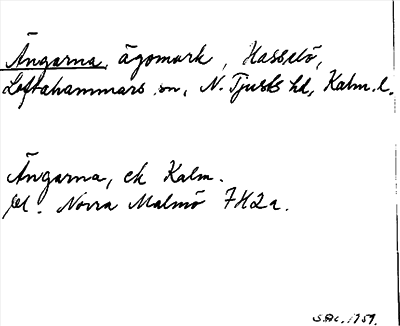 Ängarna, ägomark, Hasselö,
Loftahammars sn, N. Tjusts hd, Kalm. l.
Ängarna, ek Kalm.
bl. Norra Malmö 7H2a.
1959.